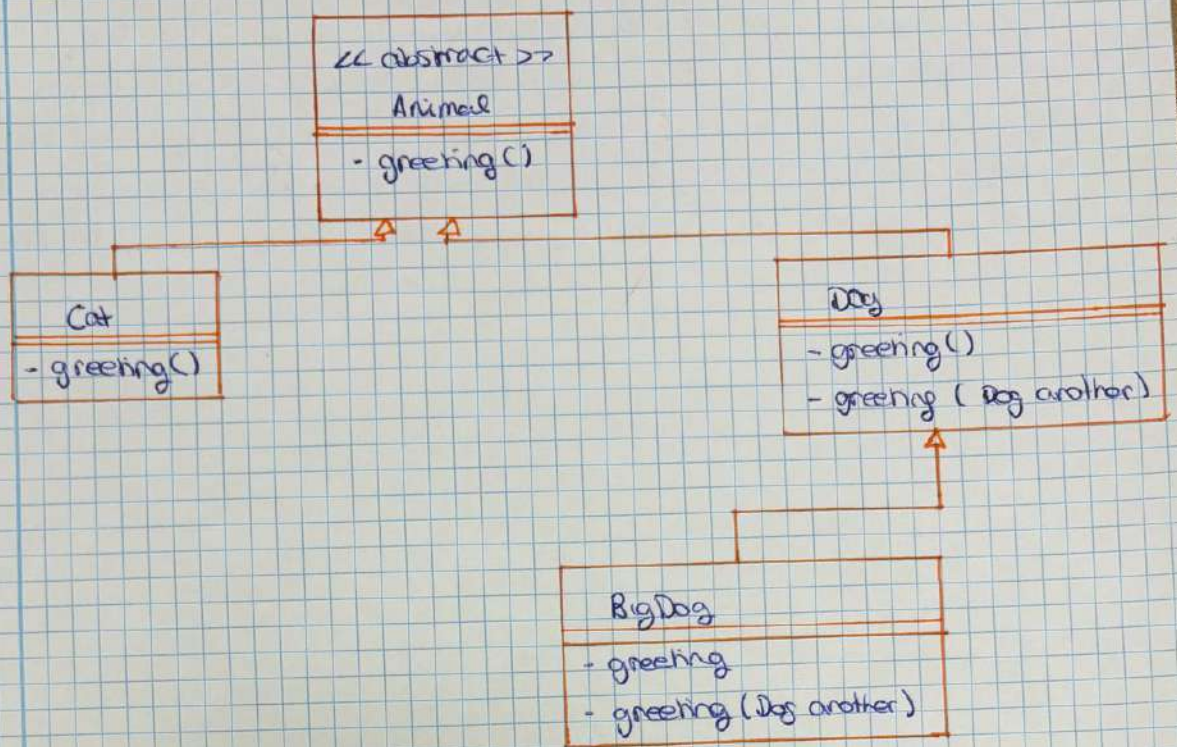 << abstract >>
Animal
- greeting()
Cat
- greeting()
Dog
- greeting()
- greeting ( Dog another)
BigDog
- greeting
- greeting (Dog another)